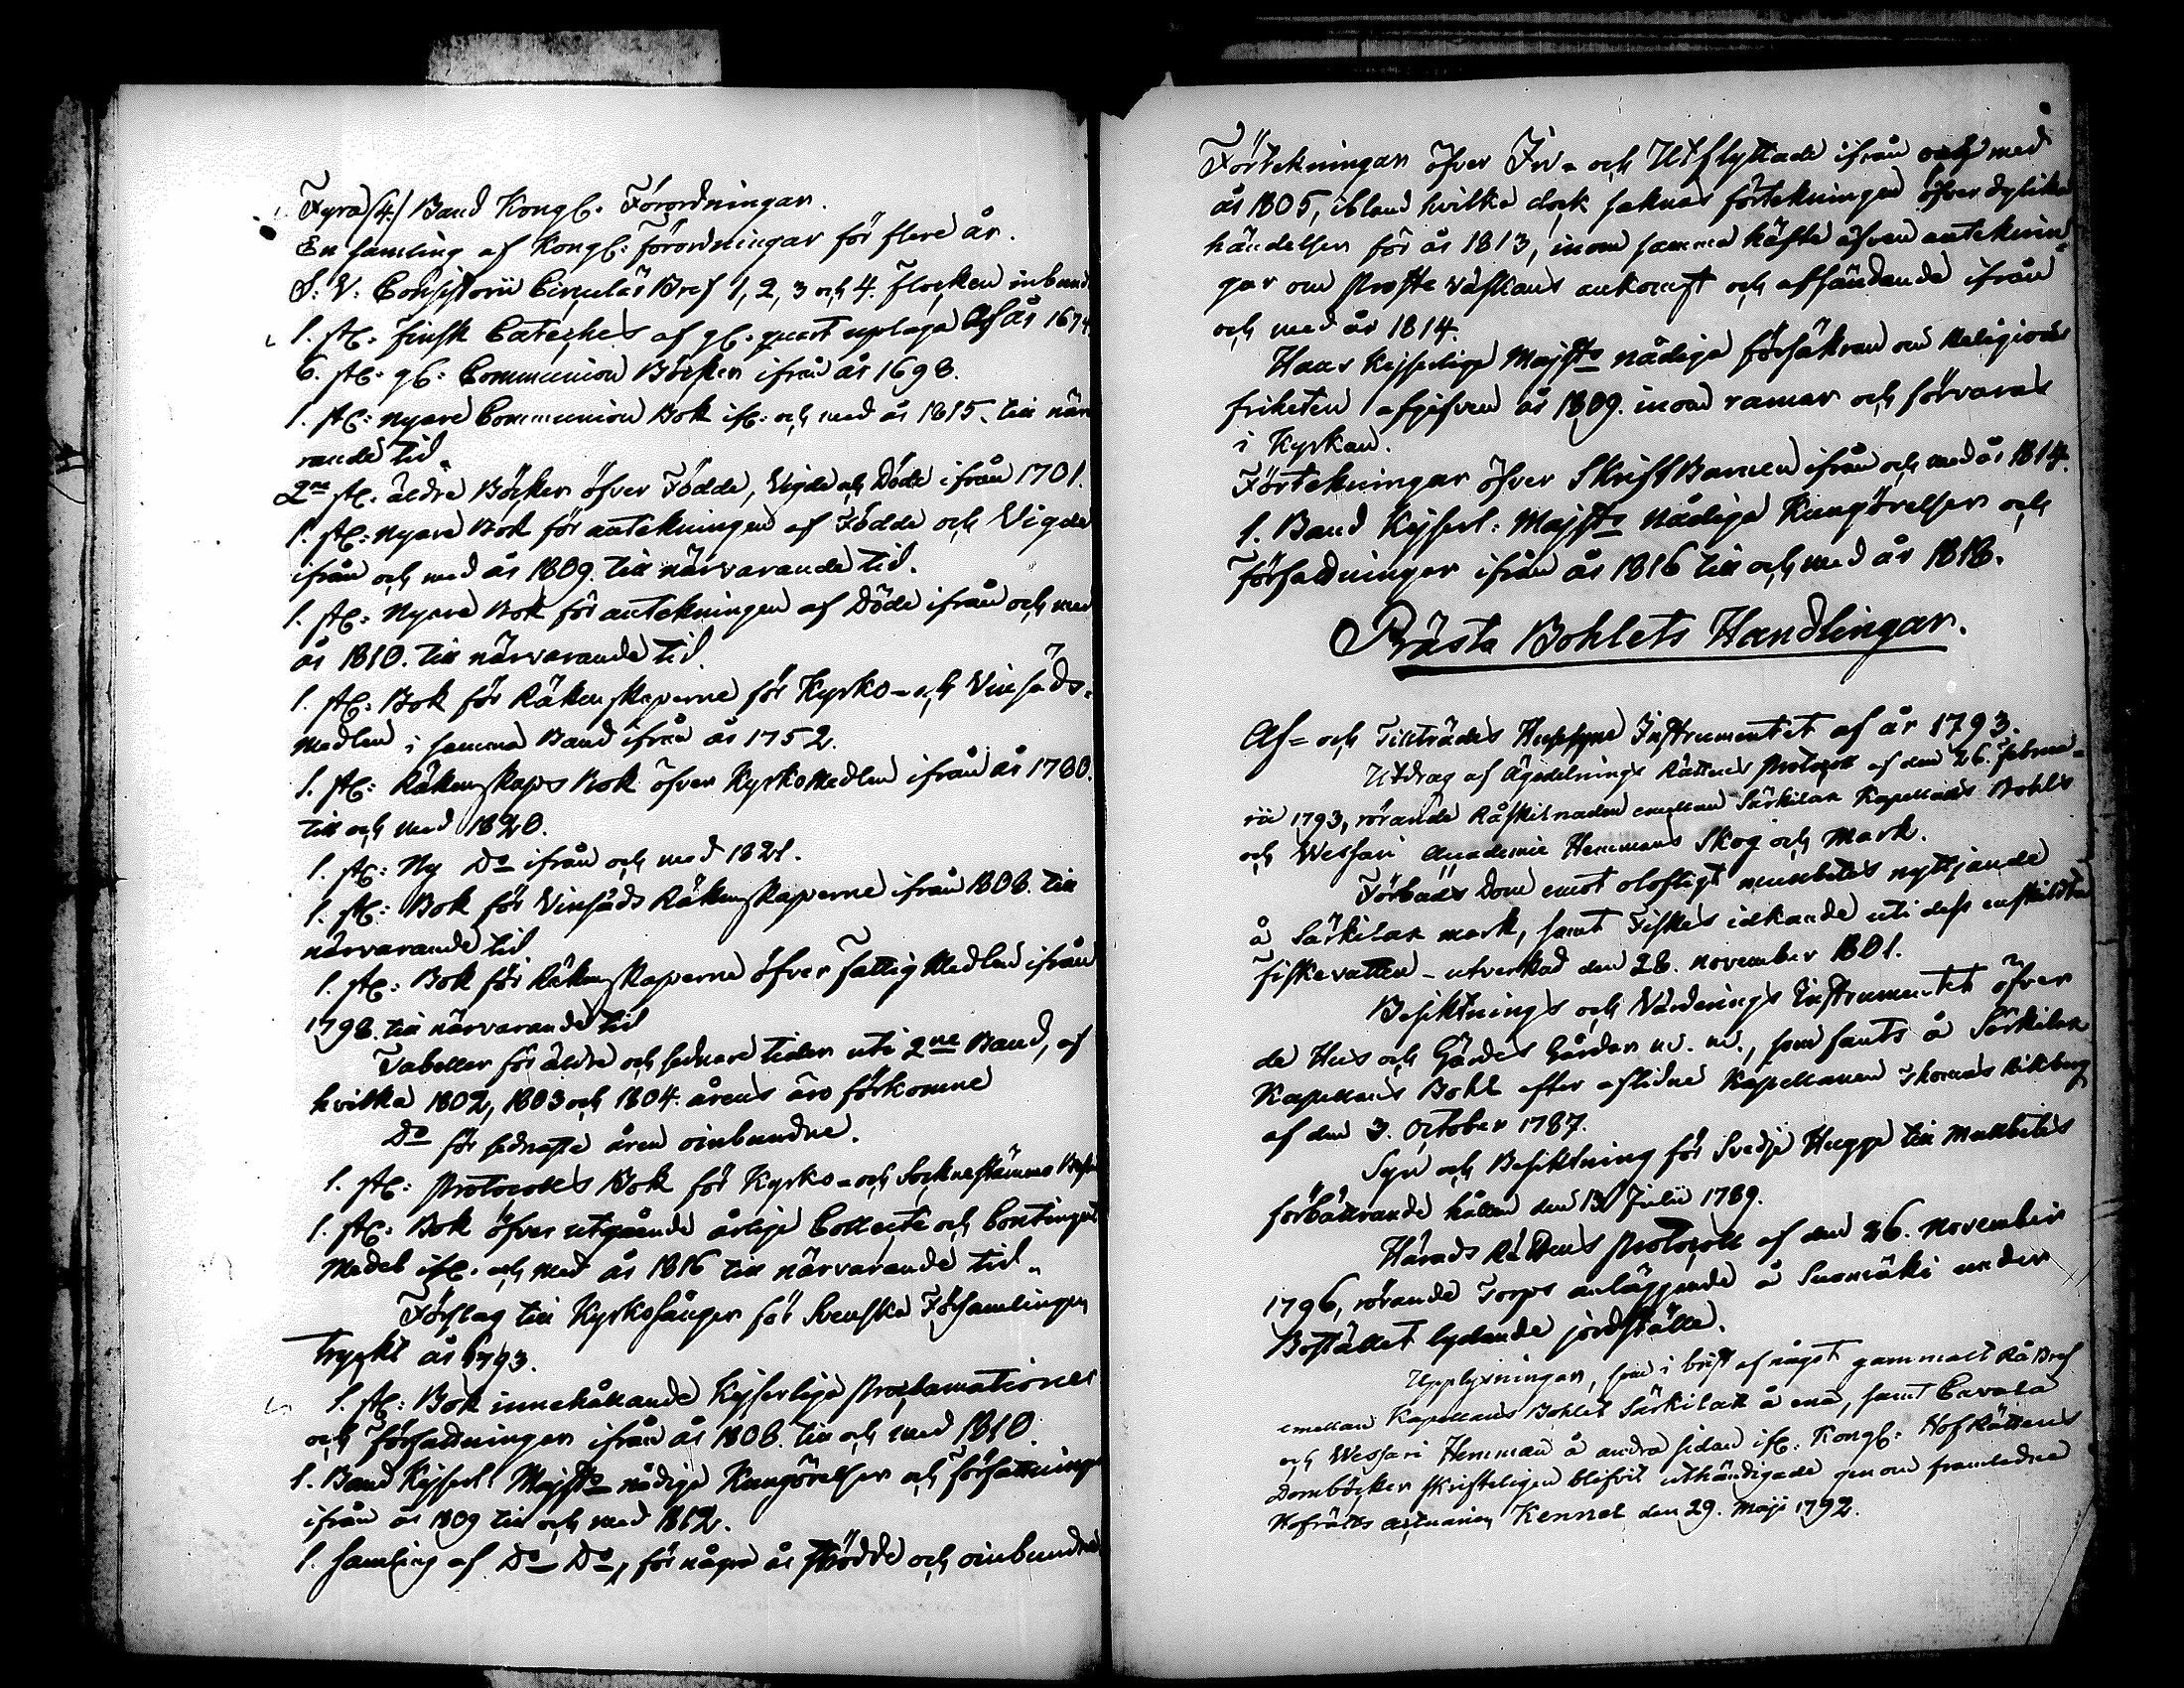 Fyra (4.) Band Kongl. Förordningar.
En samling af Kongl: Förordningar för flere år.
S: V: Consistorii Circulär Bref 1, 2, 3 och 4. Flocken inbund
1. st: finsk Cateches af gl. quart uplaga af år 1674
6. st: gl: Communion Böcker ifrån år 1698.
1. st: nyare Communion Bok ifr: och med år 1815. till när
rande tid
2ne st. äldre Böcker öfver Födde, Vigde och Döde ifrån 1701.
1. st: nyare Bok för antekningen af Födde och Vigde
ifrån och med år 1809. till närvarande tid.
1. st: Nyare Bok för antekningen af Döde ifrån och med
år 1810. till närvarande tid.
1. st: Bok för Räkenskaperne för Kyrko- och Vinsäds-
Medlen i samma Band ifrån år 1752.
1. st: Räkenskaps Bok öfver KyrkoMedlen ifrån år 1780.
till och med 1820.
1. st: Ny Do ifrån och med 1821.
1. st: Bok för Vinsäds Räkenskaperne ifrån 1808. till
närvarande tid
1. st: Bok för Räkenskaperne öfver Fattig Medlen ifrån
1798. till närvarande tid
Tabeller för äldre och sednare tider uti 2ne Band, af
hvilka 1802, 1803 och 1804. årens äro förkomne
Do för sednaste åren oinbundne.
1. st: Protocolls Bok för Kyrko- och Socknestämmo
1. st: Bok öfver utgående årlige Collecte och Contingent
Medel ifr. och med år 1816 till närvarande tid.
Förslag till Kyrkosånger för Svenska Församlingen
tryckt år 1793.
1. st: Bok innehållande Kejserliga Proclamationer
och Författningar ifrån år 1808. till och med 1810.
1. Band Kejserl: Majsts nådiga Kungörelser och Författninga
ifrån år 1809 till och med 1812.
1. samling af Do Do, för några år strödde och oinbundne
Förtekningar öfver In- och Utflyttade ifrån och med
år 1805, ibland hvilka dock saknas förtekningen öfver dylika
händelser för år 1813, inom samma häfte äfven anteknin
gar om Post wäskans ankomst och afsändande ifrån
och med år 1814.
Hans Kejserliga Majsts nådiga försäkran om Religions
friheten afgifven år 1809. inom ramar och förvaras
i Kyrkan.
Förtekningar öfver SkriftBarnen ifrån och med år 1814.
1. Band Kejserl: Majsts Nådiga Kungörelser och
Författningar ifrån år 1816 till och med år 1818.
Prästa Bohlets Handlingar.
Af- och Tillträdes Hussyne Instrumentet af år 1793.
Utdrag af Ägodelnings Rättens Protocoll af den 26. Februa-
rii 1793, rörande Råskilnaden emellan Särkilax Kapellans Bohls
och Wessari Academie Hemmans Skog och Mark.
Förbuds Dom emot olofligt mulbetes nyttjande
å Särkilax mark, samt Fiskes idkande uti dess enskildta
Fiskevatten - utverkad den 28. november 1801.
Besiktnings och Värderings Instrumentet öfver
de Hus och Gärdes Gårdar m. m., som fants å Särkilax
Kapellans Bohl efter aflidne Kapellanen Thomas Rikberg
af den 3. October 1787.
Syn och Besiktning för Svedje Hugge till Mulbetes
förbättrande hållen den 13 Julii 1789.
Härads Rättens Protocoll af den 26. November
1796, rörande Torps anläggende å Suomäki under
Boställets lydande jordställe.
Upplysningar, som i brist af något gammalt RåBref
emellan Kapellans Bohlet Särkilax å ena, samt Cavala
och Wessari Hemman å andra sidan ifr: Kongl: Hofrättens
Domböcker skrifteligen blifvit uthändigade genom framledne
Hofrätts actuarien Kennet den 29. Maji 1792.